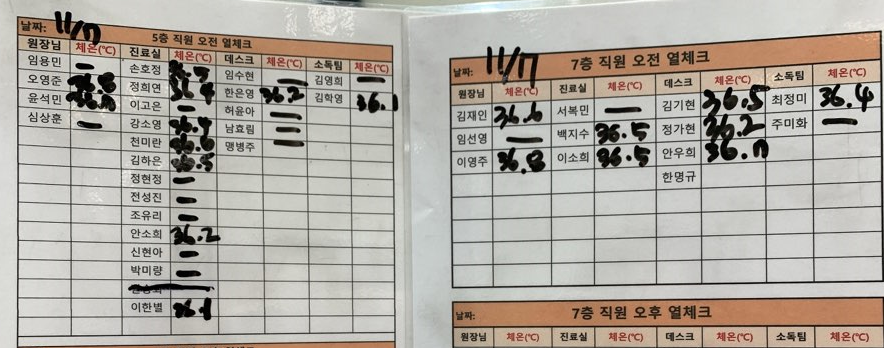 날짜: 11/17 5층 직원 오전 열체크
원장님 체온(℃) 진료실 체온(℃) 데스크 체온(℃) 소독팀 체온(℃)
임용민 — 손호정 임수현 — 김영희 —
오영준 36.8 정희연 36.4 한은영 36.2 김학영 36.1
윤석민 이고은 — 허윤아 —
심상훈 — 강소영 36.4 남효림 —
천미란 36.6 맹병주 —
김하은 36.5
정현정 —
전성진 —
조유리 —
안소희 36.2
신현아 —
박미량 —
이한별 36.1
날짜: 11/17 7층 직원 오전 열체크
원장님 체온(℃) 진료실 체온(℃) 데스크 체온(℃) 소독팀 체온(℃)
김재인 36.6 서복민 — 김기현 36.5 최정미 36.4
임선영 — 백지수 36.5 정가현 36.2 주미화 —
이영주 36.8 이소희 36.5 안우희 36.7
한명규
날짜: 7층 직원 오후 열체크
원장님 체온(℃) 진료실 체온(℃) 데스크 체온(℃) 소독팀 체온(℃)